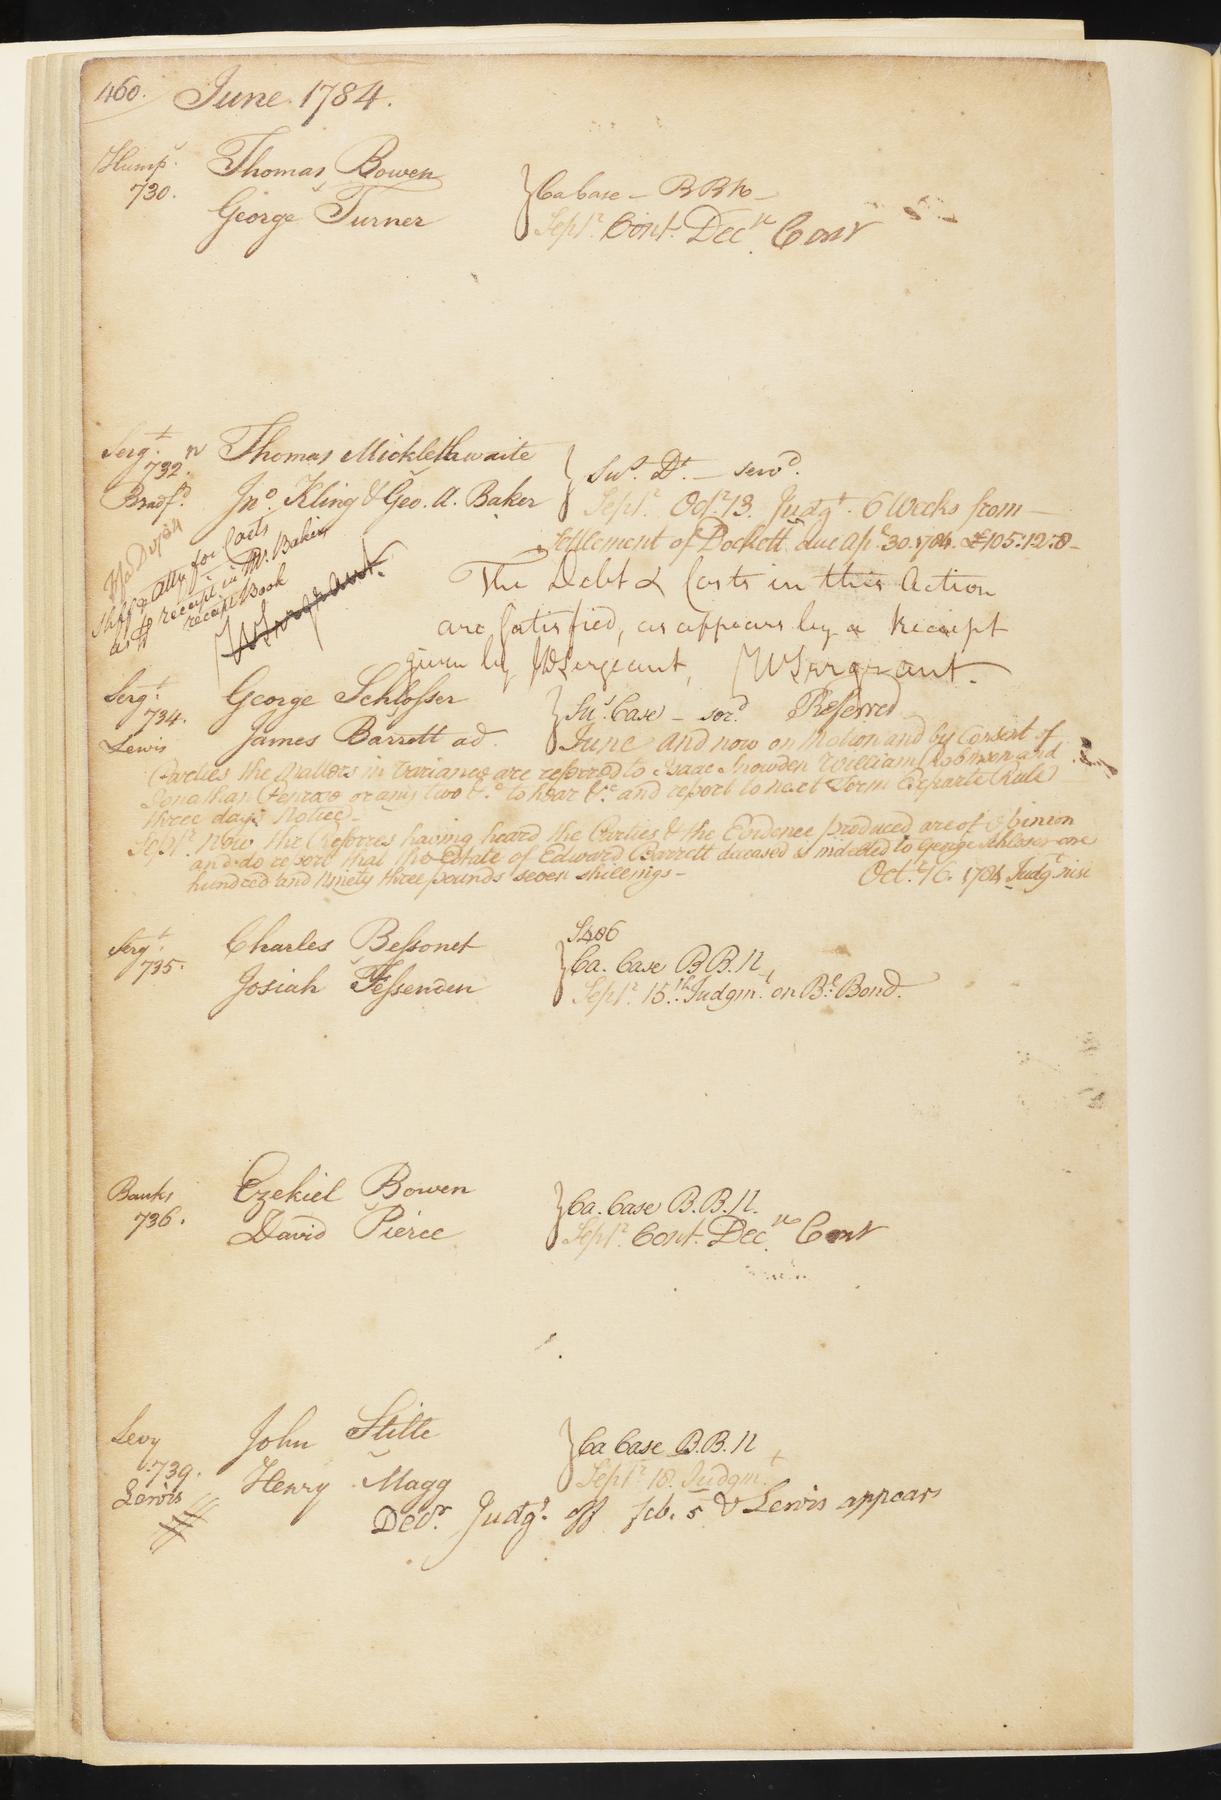 460. June 1784.
Hump.
730.
Thomas Bowen
George Turner
Ca Case — B B N —
Sept.r Cont. Decr Cont
Serg.t n
732.
Bradf.d
Thomas Micklethwaite
Jno. Kling & Geo. A. Baker
Su.s D.t — serv.d
Sept.r Oct.r 13. Judg.t 6 Weeks from —
Settlement of Dockett due Ap.l 30. 1784. £105:12:8 —
Atty for Costs
as receipt in Mr. Baker
receipt Book
The Debt & Costs in this Action
are Satisfied, as appears by a Receipt
given by Sergeant,
Serg.t
734.
Lewis
George Schlosser
James Barrett ad.
Su.s Case — ser.d Referred
June and now on Motion and by Consent of
Parties the Matters in Variance are referred to Isaac Snowden William Robinson and
Jonathan Penrose or any two &.c to hear &.c and report to next Term Exparte Rule
three days Notice —
Sept.r Now the Referres having heard the Parties & the Evidence produced are of Opinion
and do report that the Estate of Edward Barrett deceased is indebted to George Schlosser one
hundred and Ninety three pounds seven shillings —
Oct.r 16. 1784 Judg.t nisi
Serg.t
735.
Charles Bessonet
Josiah Fessenden
S406
Ca. Case B. B. N,
Sept.r 15.th Judgm.t on B.l Bond.
Banks
736.
Ezekiel Bowen
David Pierce
Ca. Case B. B. N.
Sept.r Cont. Decr Cont
Levy
739.
Lewis
John Stille
Henry Magg
Ca Case B. B. N
Sept.r 18. Judgm.t
Decr. Judg.t off Feb. 5 & Lewis appears